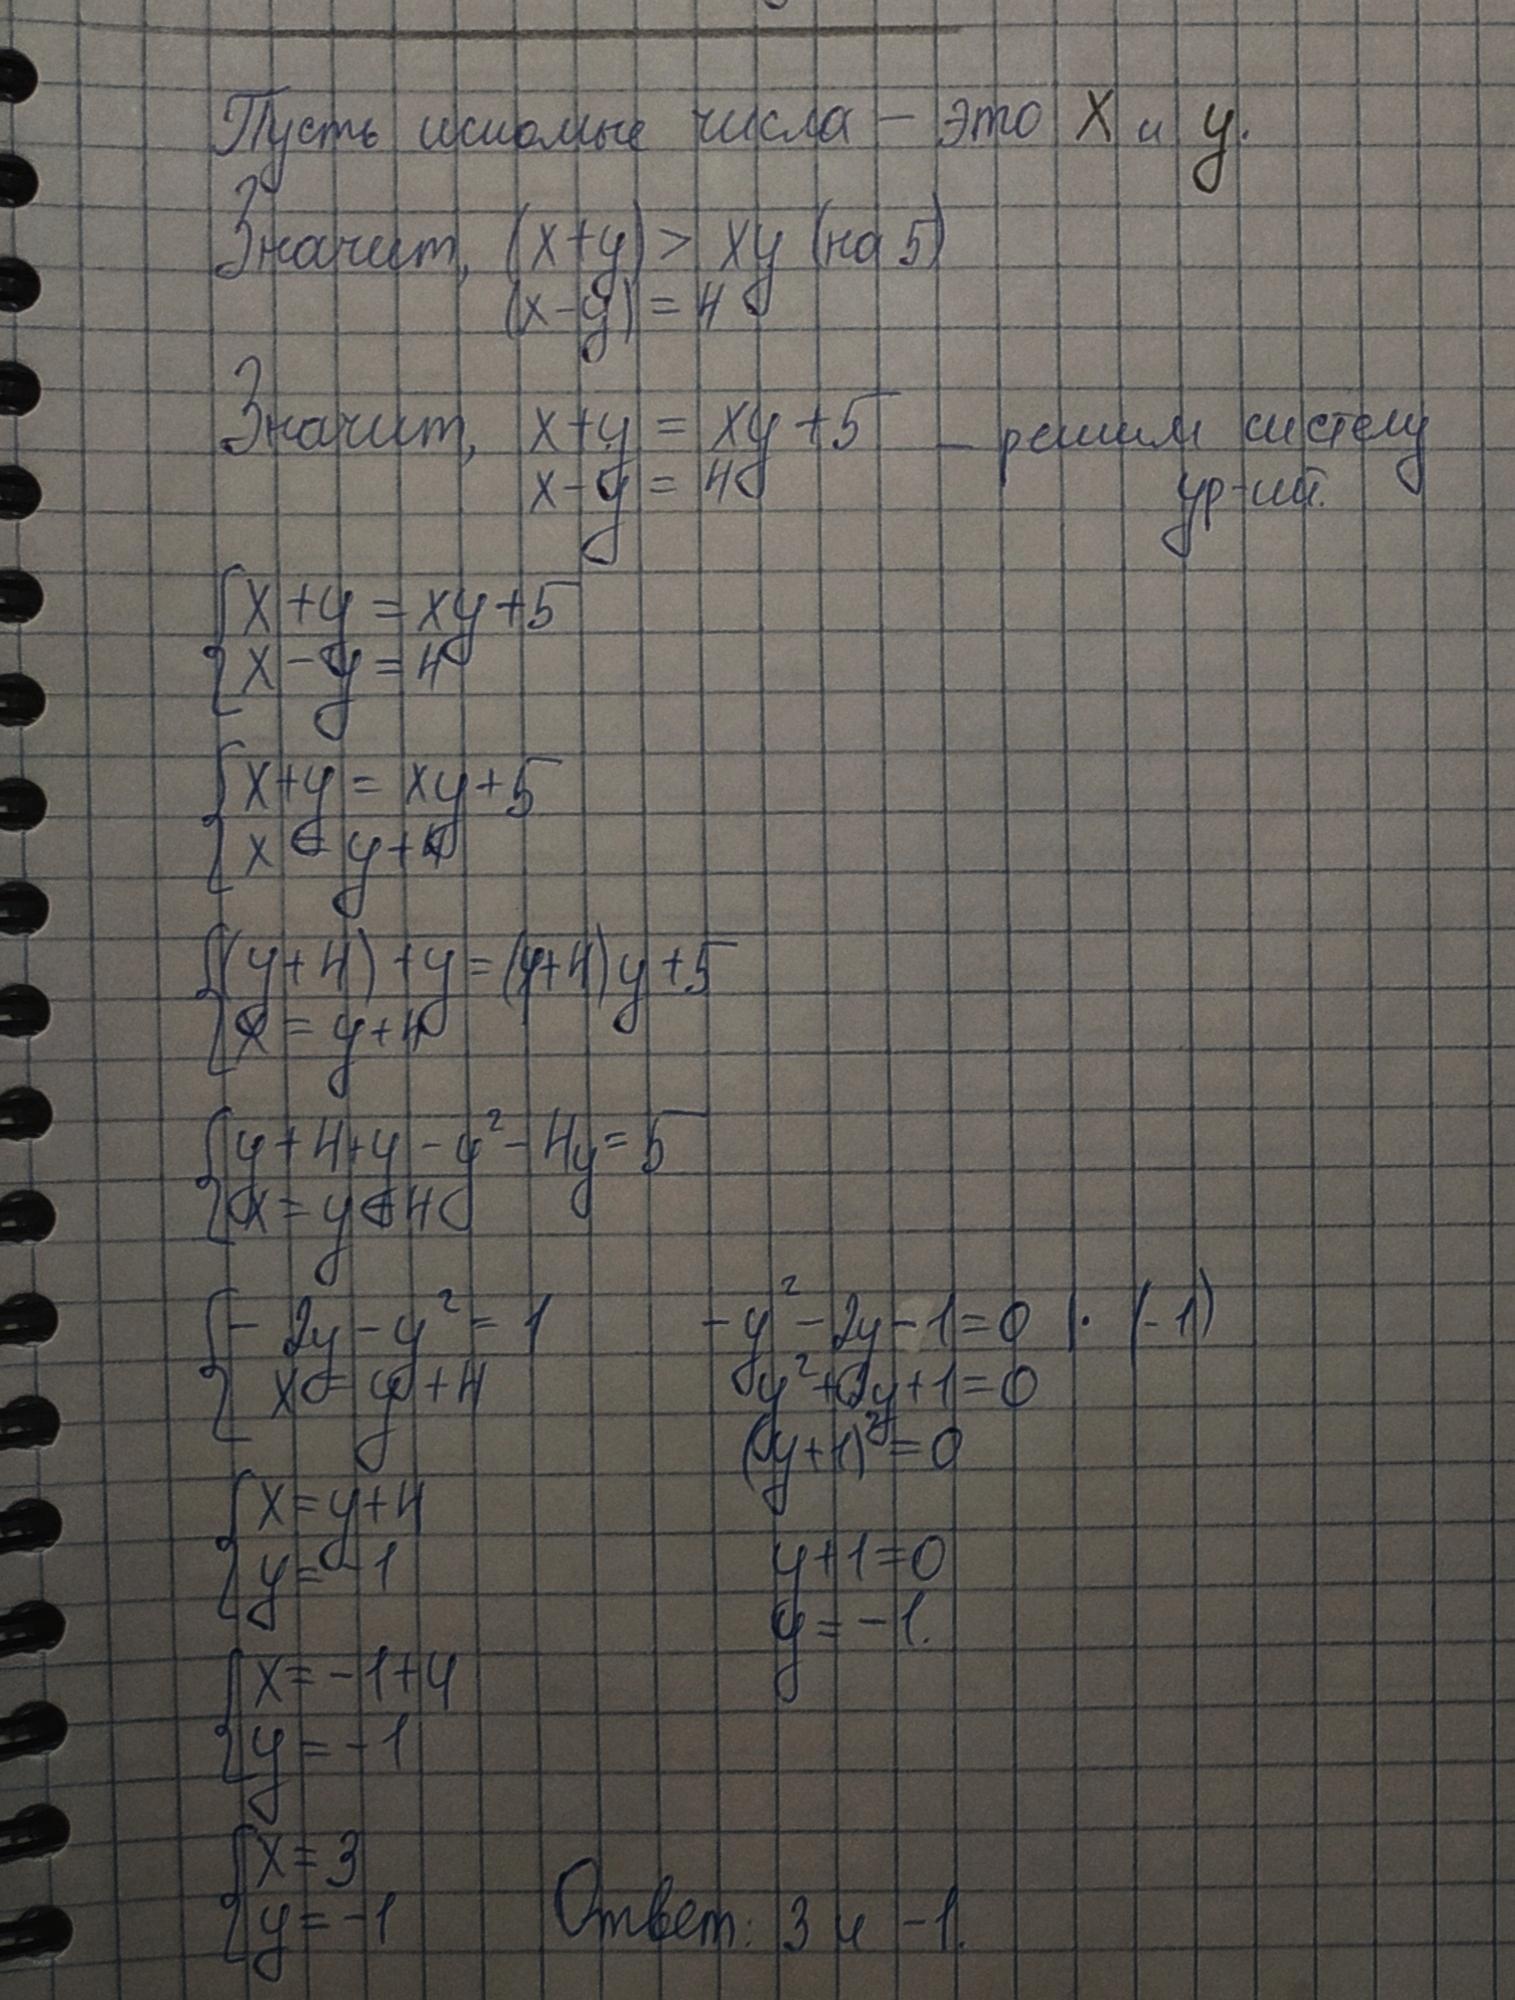 Пусть искомые числа – это x и y.
Значит, (x+y) > xy (на 5)
(x-y) = 4
Значит, x+y = xy+5 – решим систему
x-y = 4 ур-ий.
{ x+y = xy+5
x-y = 4
{ x+y = xy+5
x = y+4
{ (y+4)+y = (y+4)y+5
x = y+4
{ y+4+y-y²-4y = 5
x = y+4
{ -2y-y² = 1 -y²-2y-1=0 |·(-1)
x = y+4 y²+2y+1=0
(y+1)²=0
{ x = y+4
y = -1 y+1=0
y = -1.
{ x = -1+4
y = -1
{ x = 3
y = -1 Ответ: 3 и -1.